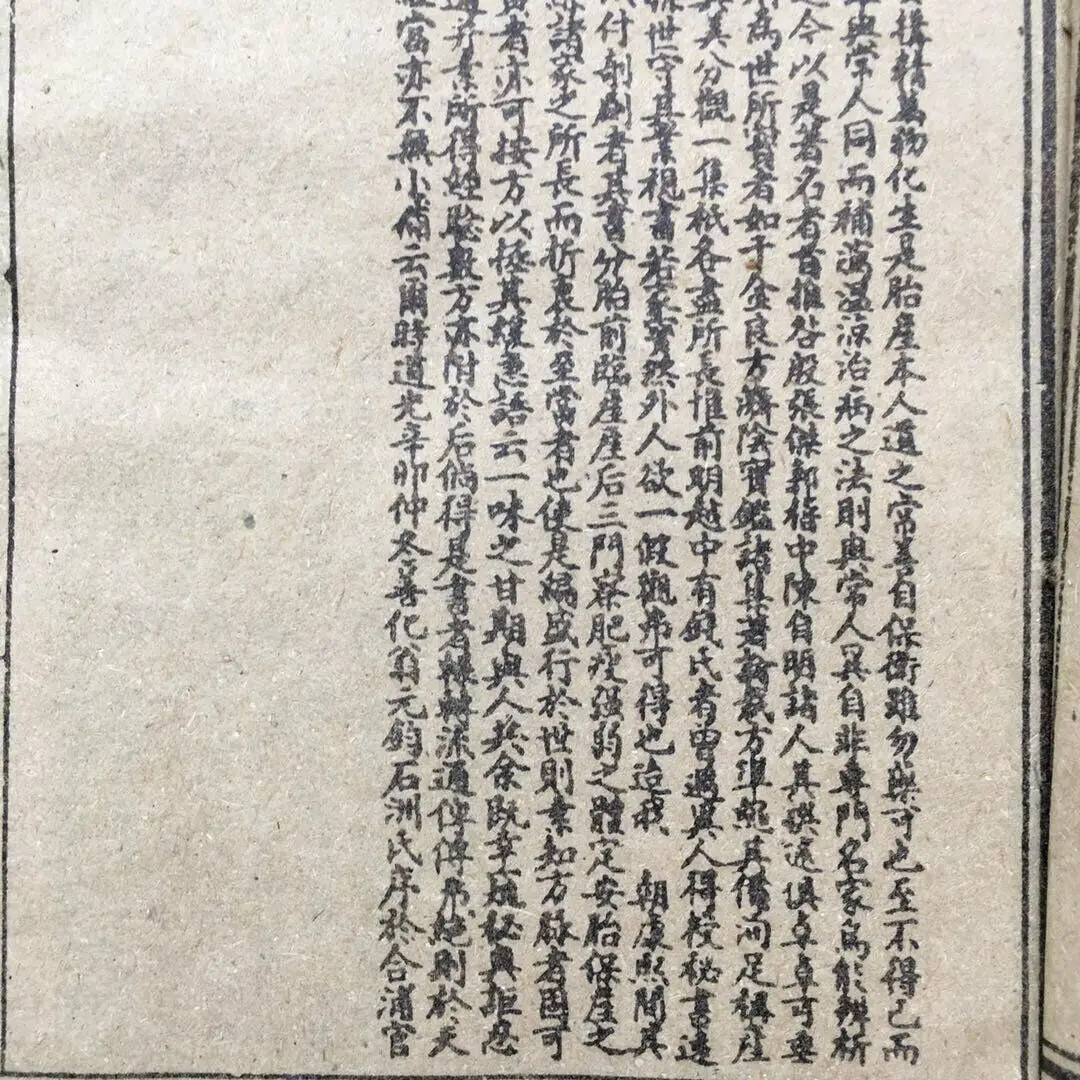 精萬物化生是胎產本人道之常善自保衛雖勿藥可也至不得已而
與常人同而補瀉溫凉治病之法則與常人異自非專門名家焉能辨析
今以是著名者首推昝殷張傑郭稽中陳自明諸人其撰述俱卓卓可
為世所者如千金良方濟陰寶鑑諸集著方準繩其備問足稱產
其美分觀一集秖各盡所長惟前明越中有錢氏者曾遇異人得授秘書
世守其業視書若寶然外人欲一假觀弗可得也迨我 朝康熙間其
付剞劂者其書分胎前臨產產后三門察肥瘦强弱之體定安胎保產之
諸家之所長而折衷於至當者也使是編盛行於世則業知方脉者固可
者亦可按方以拯其難急語云一味之甘期與人共余既幸秘與
弁業所得經驗數方亦附於后倘得是書者輾轉流通傳傳弗絕則於天
富亦不無小補云爾時道光辛卯仲冬善化翁元鈞石洲氏序於合浦官